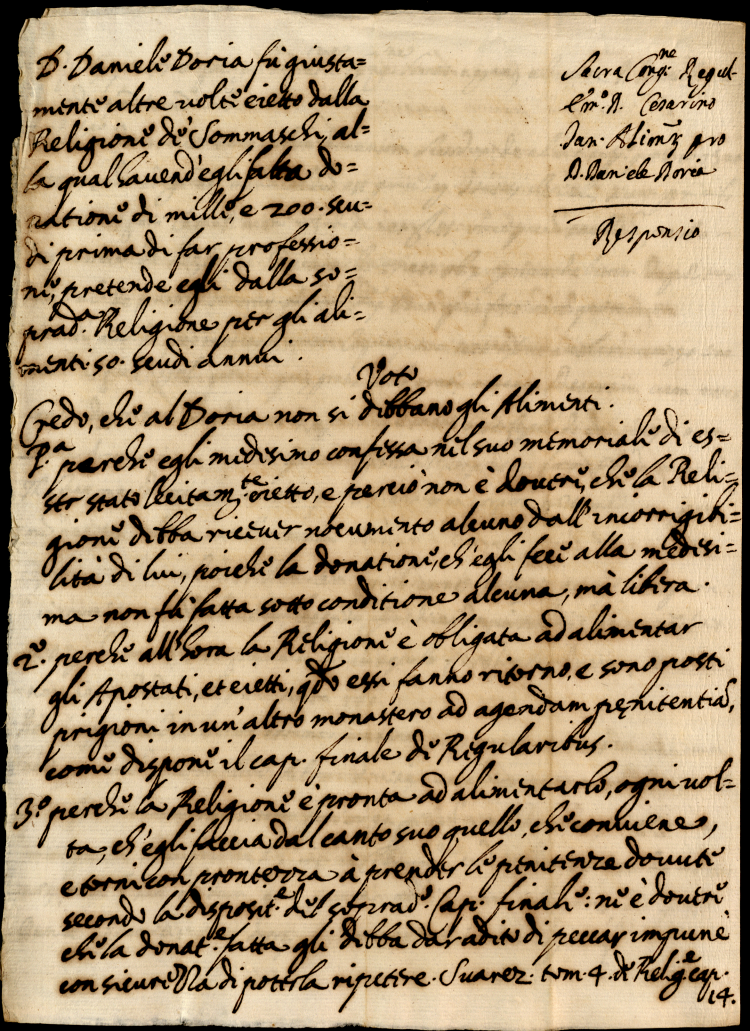 D. Daniele Doria fù giusta=
mente altre volte eietto dalla
Religione de Sommaschi, al=
la qual havend'egli fatta do=
natione di mille, e 200. scu=
di prima di far professio=
ne, pretende egli dalla so=
prad.ª Religione per gli ali=
menti 50. scudi annui.
Sacra Cong.ne Regul.
Em.º D. Cesarino
Jan. Alim. pro
D. Daniele Doria
Responsio
Voto
Credo, che al Doria non si debbano gli Alimenti.
P.ª perche egli medesimo confessa nel suo memoriale di es=
ser stato lecitam.te eietto, e perciò non è dovere, che la Reli=
gione debba ricever nocumento alcuno dall'incorrigibi=
lità di lui, poiche la donatione, ch'egli fece alla medesi=
ma non fù fatta sotto conditione alcuna, mà libera.
2.º perche all'hora la Religione è obligata ad alimentar
gli Apostati, et eietti, qdo essi fanno ritorno, e sono posti
prigioni in un'altro monastero ad agendam penitentia,
come dispone il cap. finale de Regularibus.
3.º perche la Religione è pronta ad alimentarlo, ogni vol=
ta, ch'egli faccia dal canto suo quello, che conviene,
e torni con prontezza à prender le penitenze dovute
secondo la disposit.e del soprad.º Cap. finale: ne è dovere
che la donat.e fatta gli debba dar adito di peccar impune
con sicurezza di poterla ripetere. Suarez. tom. 4. de Relig.e cap.
14.